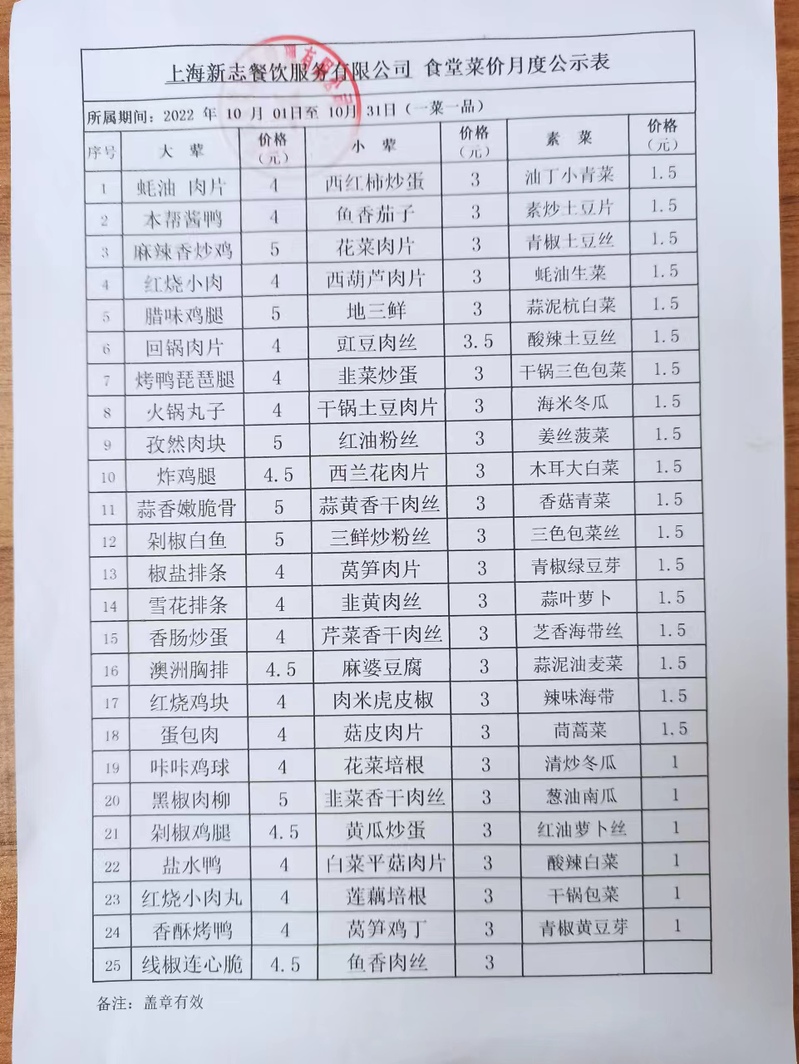 上海新志餐饮服务有限公司 食堂菜价月度公示表
所属期间：2022 年 10 月 01日至 10月 31日（一菜一品）
序号 大 荤 价格（元） 小 荤 价格（元） 素 菜 价格（元）
1 蚝油 肉片 4 西红柿炒蛋 3 油丁小青菜 1.5
2 本帮酱鸭 4 鱼香茄子 3 素炒土豆片 1.5
3 麻辣香炒鸡 5 花菜肉片 3 青椒土豆丝 1.5
4 红烧小肉 4 西葫芦肉片 3 蚝油生菜 1.5
5 腊味鸡腿 5 地三鲜 3 蒜泥杭白菜 1.5
6 回锅肉片 4 豇豆肉丝 3.5 酸辣土豆丝 1.5
7 烤鸭琵琶腿 4 韭菜炒蛋 3 干锅三色包菜 1.5
8 火锅丸子 4 干锅土豆肉片 3 海米冬瓜 1.5
9 孜然肉块 5 红油粉丝 3 姜丝菠菜 1.5
10 炸鸡腿 4.5 西兰花肉片 3 木耳大白菜 1.5
11 蒜香嫩脆骨 5 蒜黄香干肉丝 3 香菇青菜 1.5
12 剁椒白鱼 5 三鲜炒粉丝 3 三色包菜丝 1.5
13 椒盐排条 4 莴笋肉片 3 青椒绿豆芽 1.5
14 雪花排条 4 韭黄肉丝 3 蒜叶萝卜 1.5
15 香肠炒蛋 4 芹菜香干肉丝 3 芝香海带丝 1.5
16 澳洲胸排 4.5 麻婆豆腐 3 蒜泥油麦菜 1.5
17 红烧鸡块 4 肉米虎皮椒 3 辣味海带 1.5
18 蛋包肉 4 菇皮肉片 3 茼蒿菜 1.5
19 咔咔鸡球 4 花菜培根 3 清炒冬瓜 1
20 黑椒肉柳 5 韭菜香干肉丝 3 葱油南瓜 1
21 剁椒鸡腿 4.5 黄瓜炒蛋 3 红油萝卜丝 1
22 盐水鸭 4 白菜平菇肉片 3 酸辣白菜 1
23 红烧小肉丸 4 莲藕培根 3 干锅包菜 1
24 香酥烤鸭 4 莴笋鸡丁 3 青椒黄豆芽 1
25 线椒连心脆 4.5 鱼香肉丝 3
备注：盖章有效